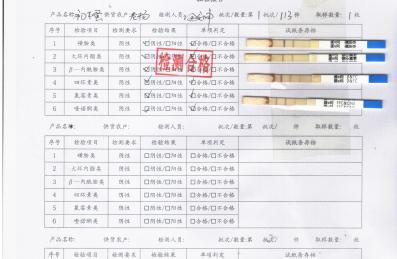 产品名称: 供货农户: 检测人员: 批次/数量:第1批次/113件 取样数量: 1 枚
序号 检验项目 检测要求 检验结果 单项判定 试纸条存档
1 磺胺类 阴性 ☑阴性/☐阳性 ☑合格/☐不合格
2 大环内酯类 阴性 ☑阴性/☐阳性 ☑合格/☐不合格
3 β-内酰胺类 阴性 ☑阴性/☐阳性 ☑合格/☐不合格
4 四环素类 阴性 ☑阴性/☐阳性 ☑合格/☐不合格
5 氯霉素类 阴性 ☑阴性/☐阳性 ☑合格/☐不合格
6 喹诺酮类 阴性 ☑阴性/☐阳性 ☑合格/☐不合格
检测合格
产品名称: 供货农户: 检测人员: 批次/数量:第 批次/ 件 取样数量: 枚
序号 检验项目 检测要求 检验结果 单项判定 试纸条存档
1 磺胺类 阴性 ☐阴性/☐阳性 ☐合格/☐不合格
2 大环内酯类 阴性 ☐阴性/☐阳性 ☐合格/☐不合格
3 β-内酰胺类 阴性 ☐阴性/☐阳性 ☐合格/☐不合格
4 四环素类 阴性 ☐阴性/☐阳性 ☐合格/☐不合格
5 氯霉素类 阴性 ☐阴性/☐阳性 ☐合格/☐不合格
6 喹诺酮类 阴性 ☐阴性/☐阳性 ☐合格/☐不合格
产品名称: 供货农户: 检测人员: 批次/数量:第 批次/ 件 取样数量: 枚
序号 检验项目 检测要求 检验结果 单项判定 试纸条存档
1 磺胺类 阴性 ☐阴性/☐阳性 ☐合格/☐不合格